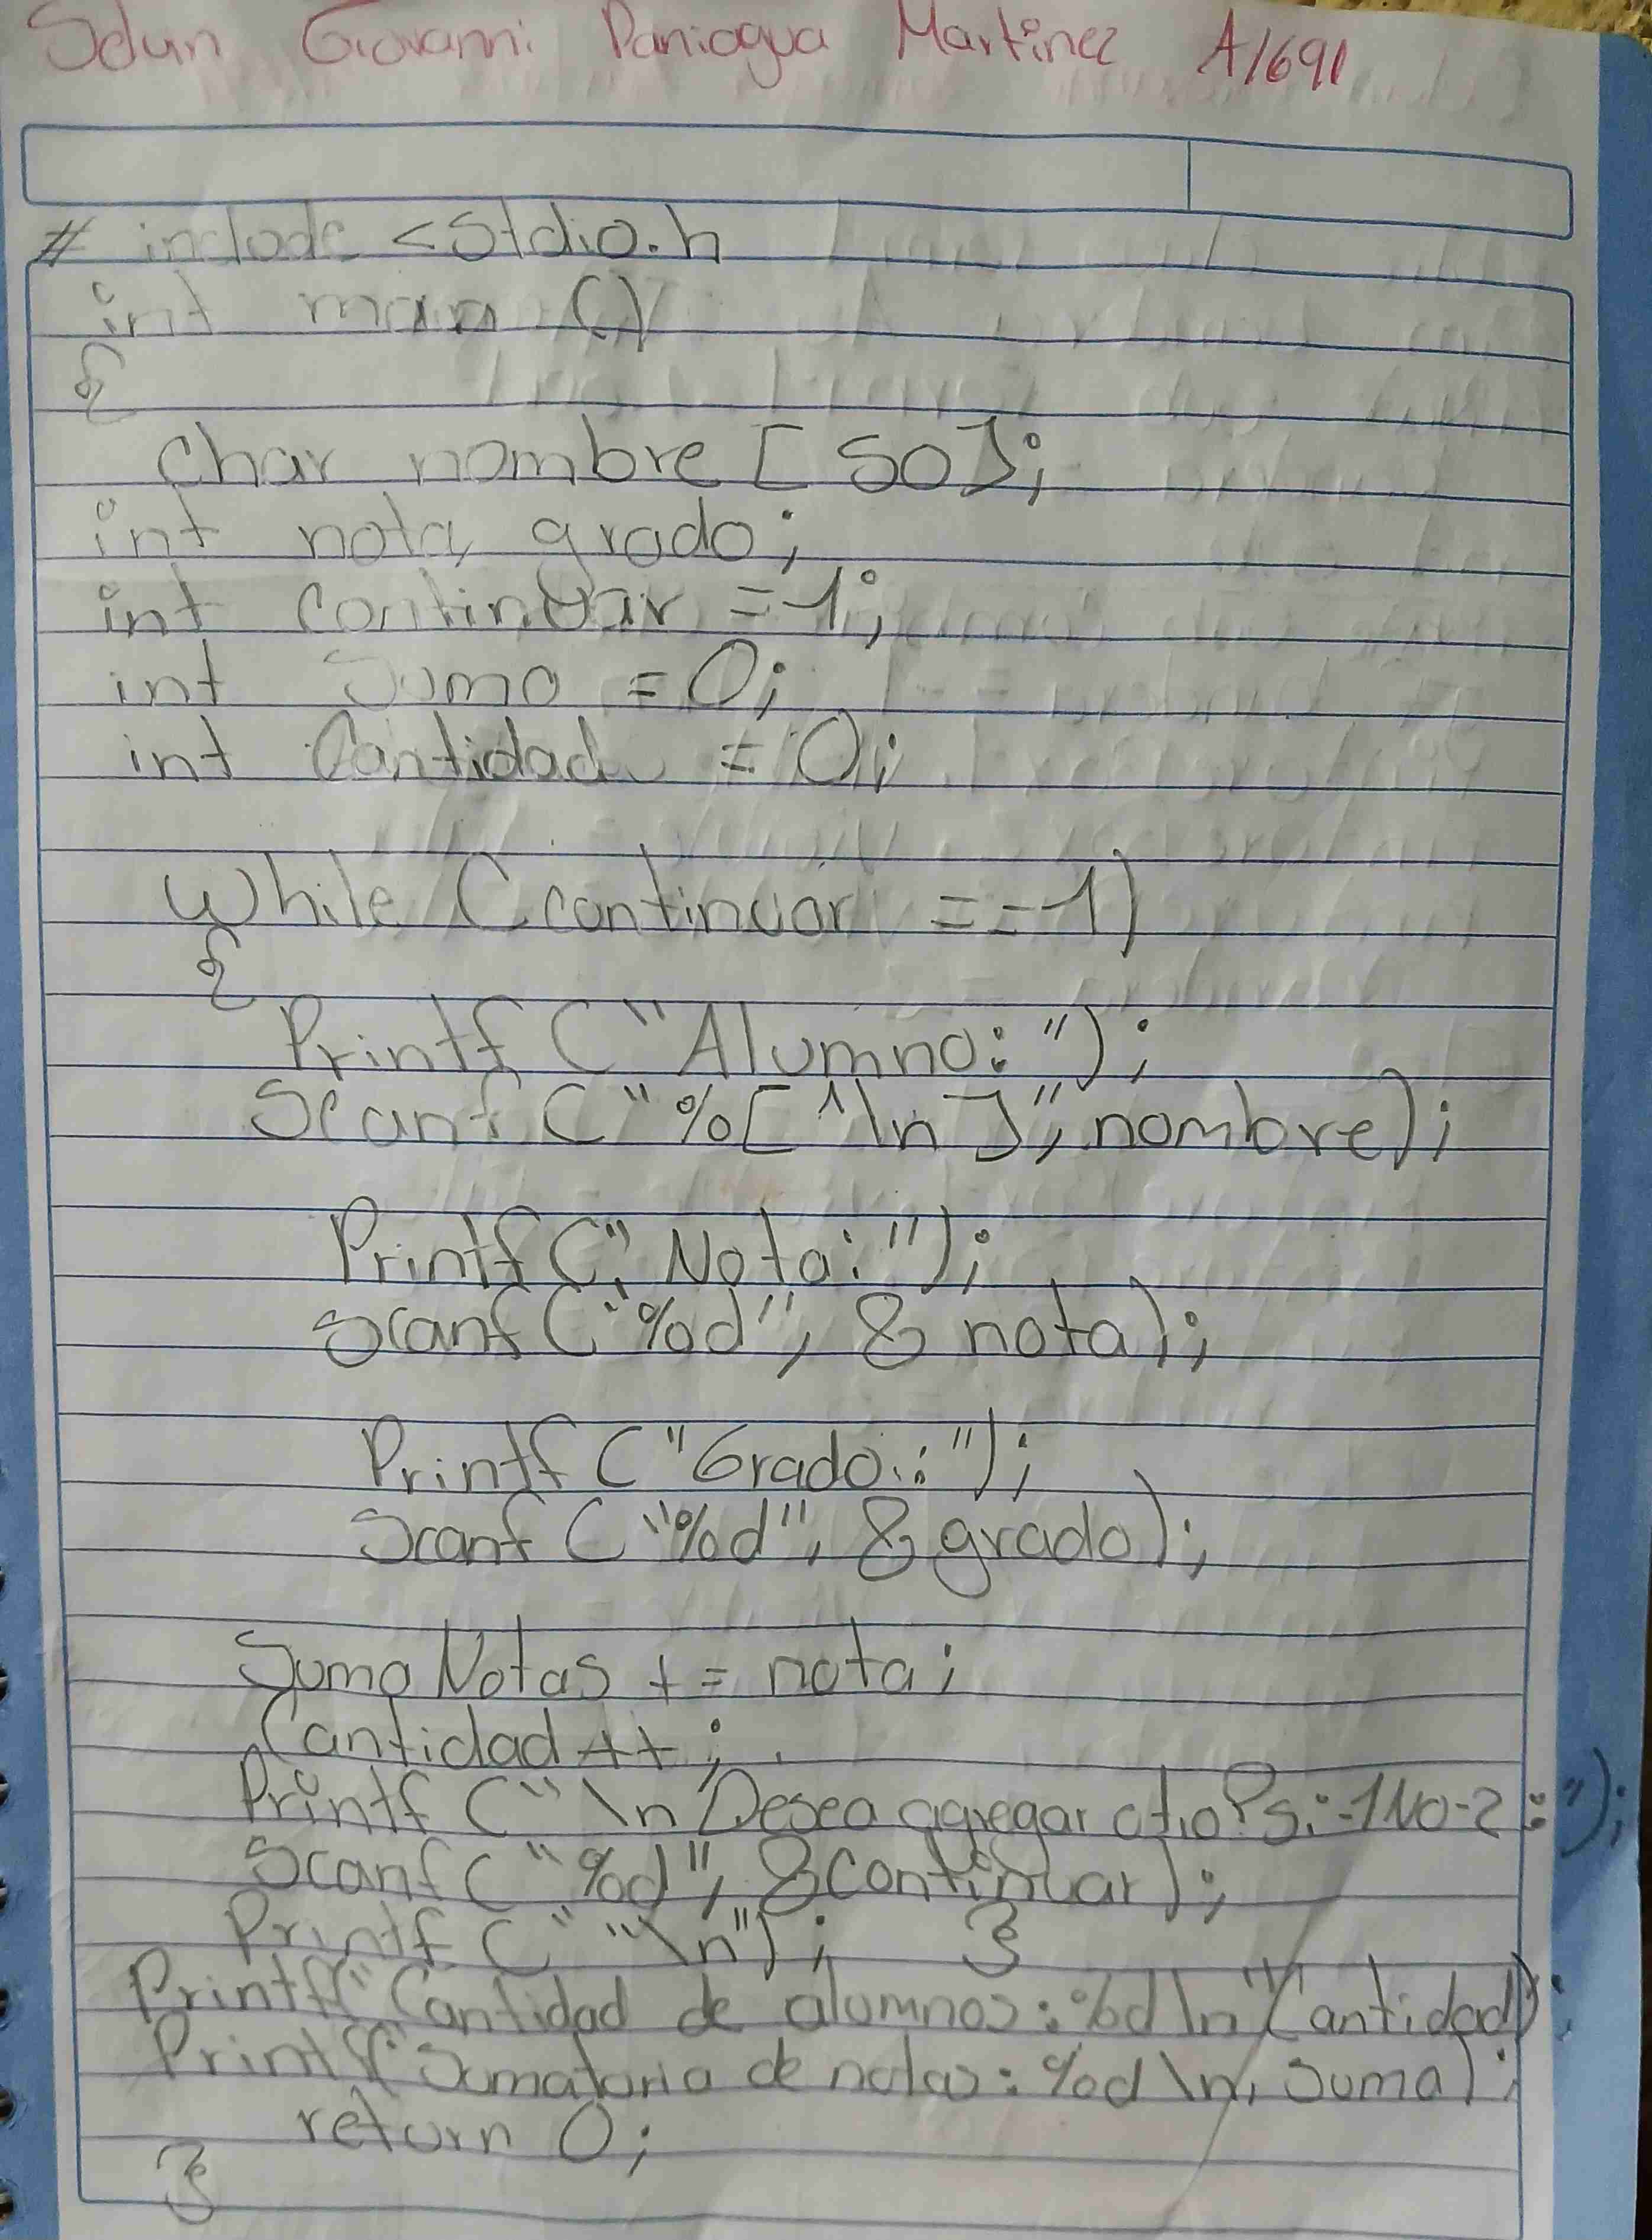 Sdun Giovanni Paniagua Martinez A1691
# include <stdio.h
int main ()
{
char nombre [50];
int nota, grado;
int continuar =-1;
int Suma =0;
int Cantidad = 0;
While (continuar ==-1)
{
Printf ("Alumno: ");
Scanf ("%[^\n]", nombre);
Printf (" Nota: ");
Scanf ("%d", & nota);
Printf ("Grado: ");
Scanf ("%d", & grado);
Suma Notas += nota;
Cantidad ++;
Printf ("\n Desea agregar otro? Si:-1 No-2:");
Scanf ("%d", &continuar);
Printf (" "\n"); }
Printf("Cantidad de alumnos: %d \n" Cantidad);
Printf("Sumatoria de notas: %d \n, Suma);
return 0;
}